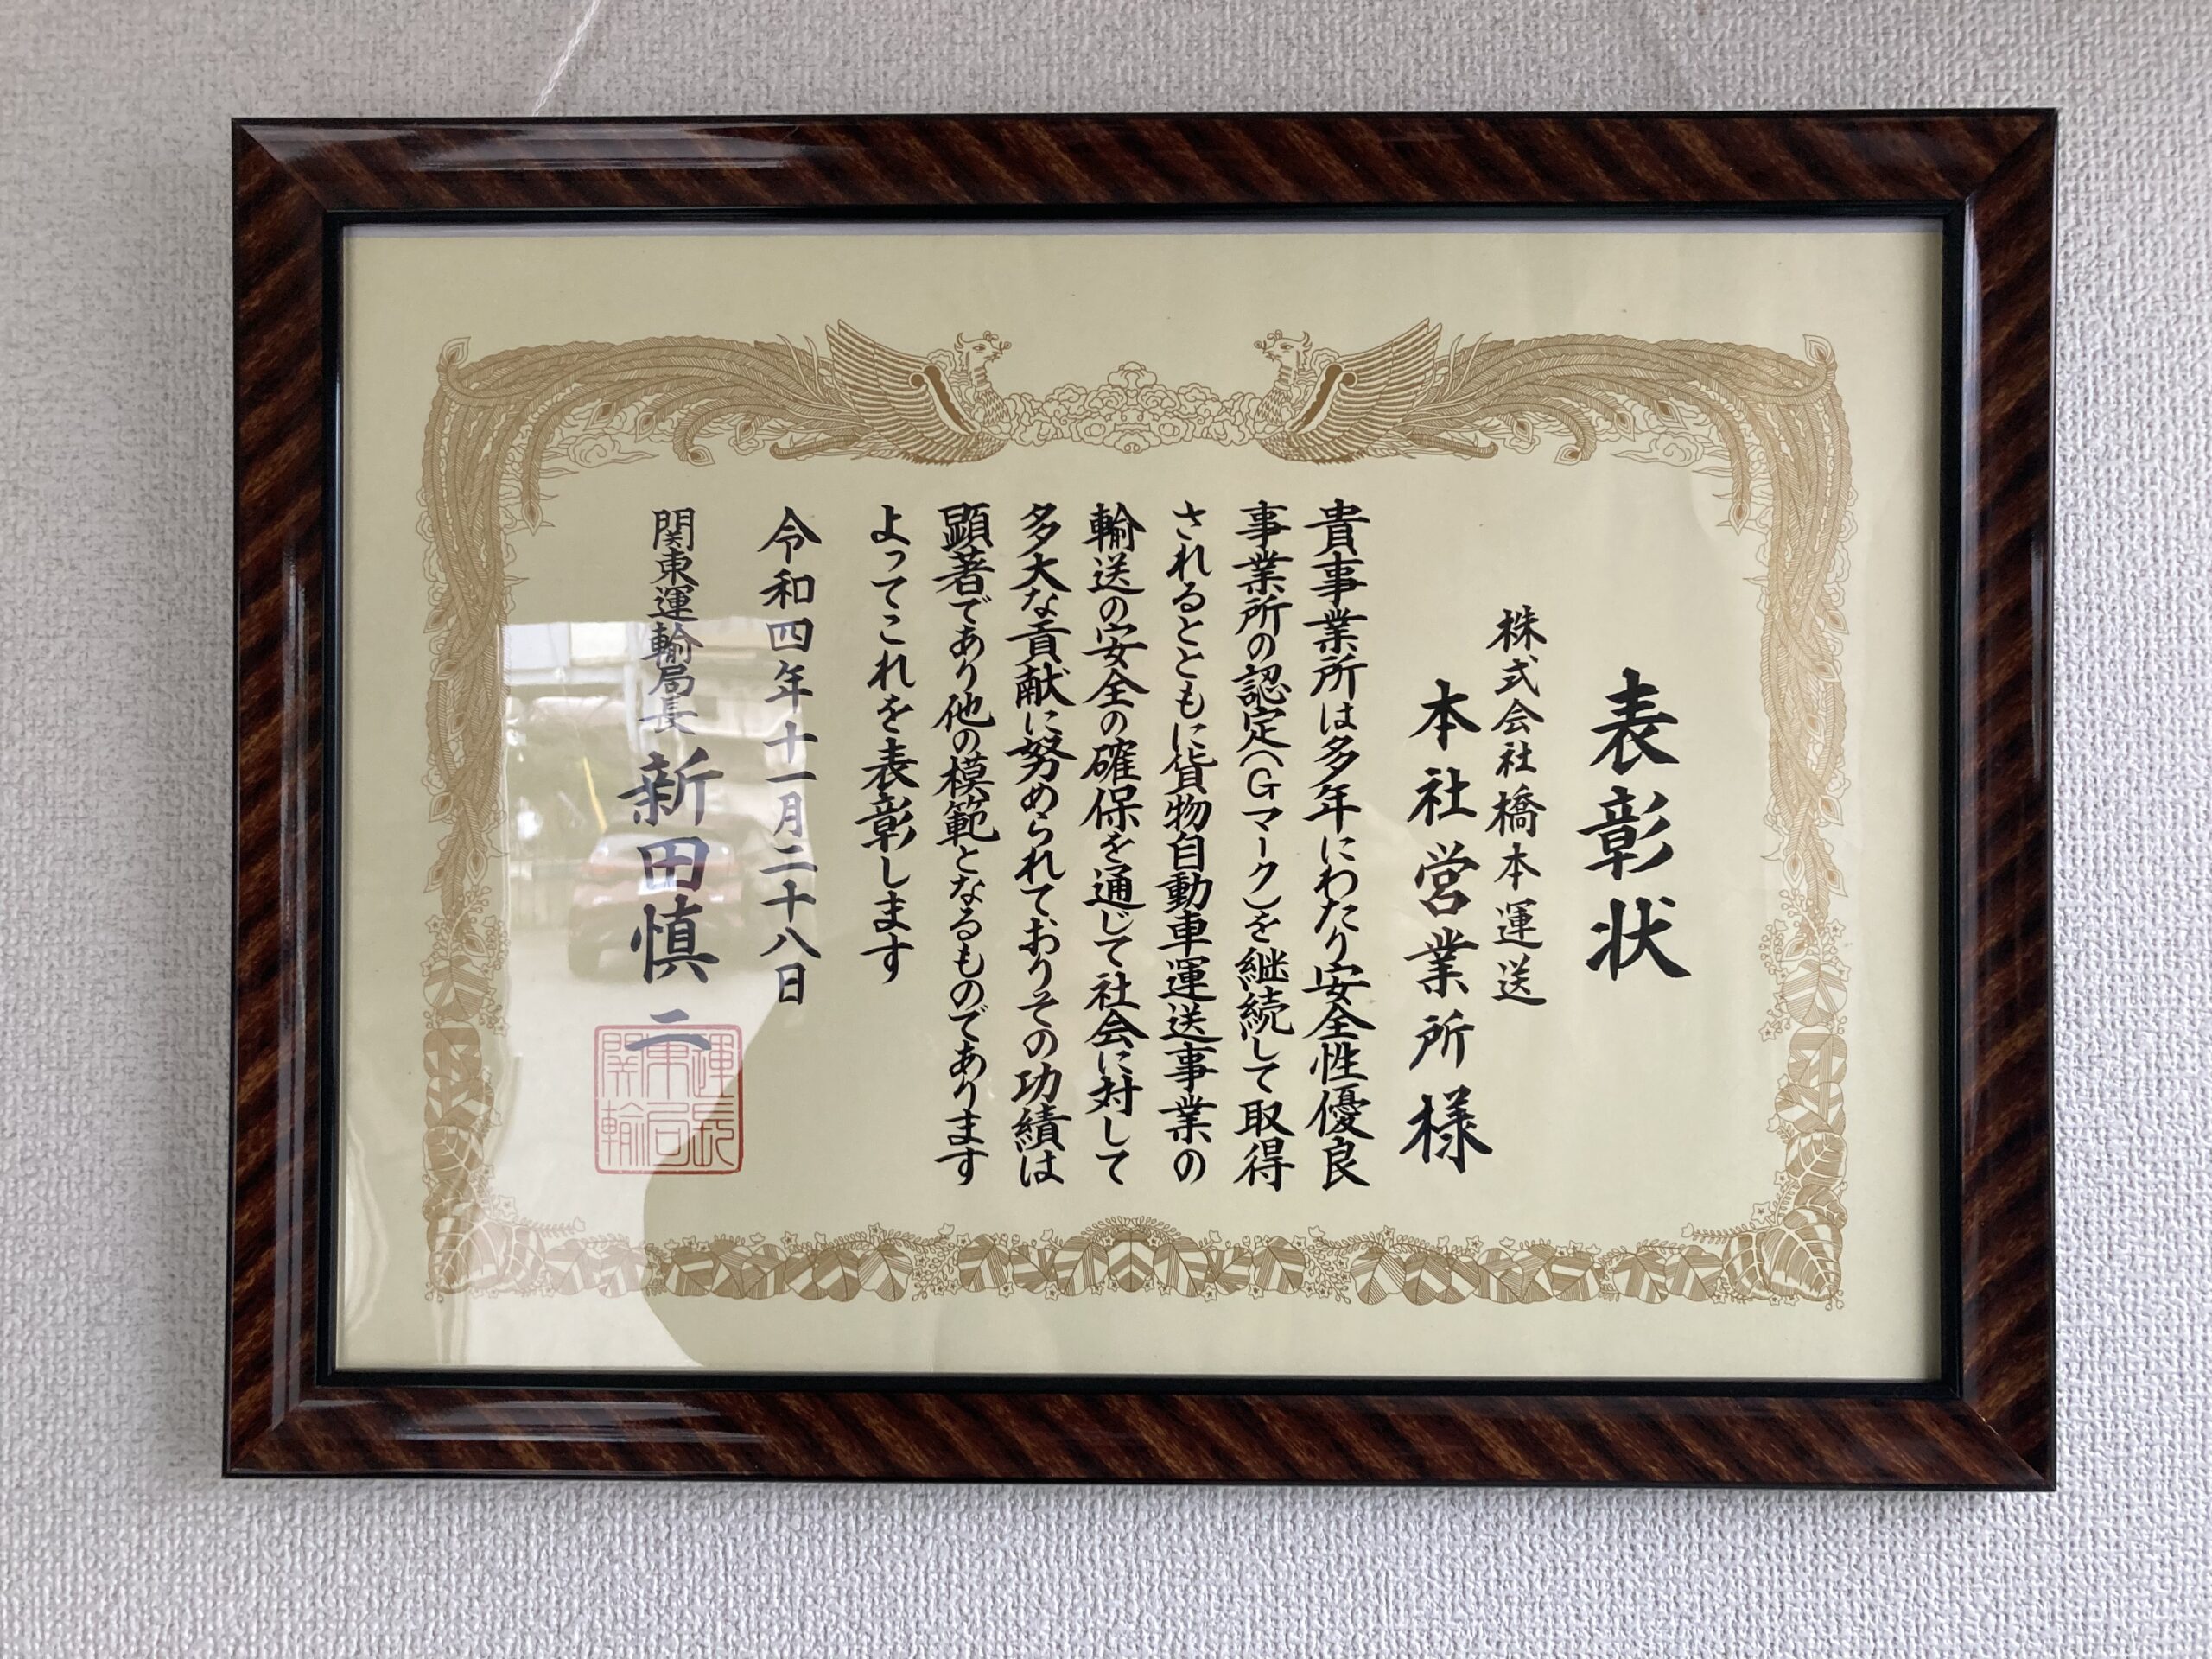 表彰状
株式会社橋本運送
本社営業所様
貴事業所は多年にわたり安全性優良
事業所の認定(Gマーク)を継続して取得
されるとともに貨物自動車運送事業の
輸送の安全の確保を通じて社会に対して
多大な貢献に努められておりその功績は
顕著であり他の模範となるものであります
よってこれを表彰します
令和四年十一月二十八日
関東運輸局長 新田慎二
関東運輸局長